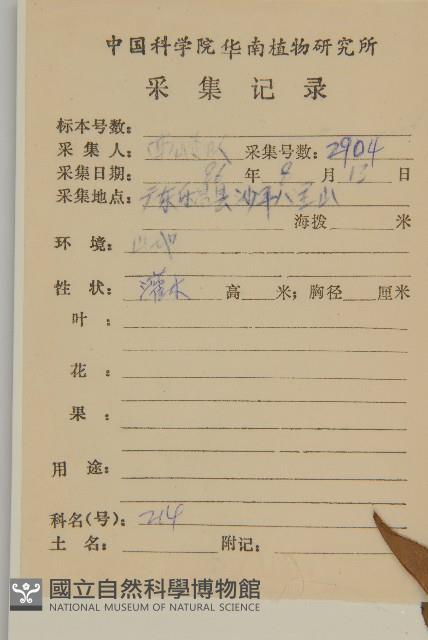 中国科学院华南植物研究所
采集记录
标本号数:
采集人: 采集号数: 2904
采集日期: 86 年 9 月 13 日
采集地点: 广东乐昌县沙坪八宝山
海拨 米
环境:
性状: 灌木 高 米; 胸径 厘米
叶:
花:
果:
用途:
科名(号): 214
土名: 附记:
國立自然科學博物館
NATIONAL MUSEUM OF NATURAL SCIENCE